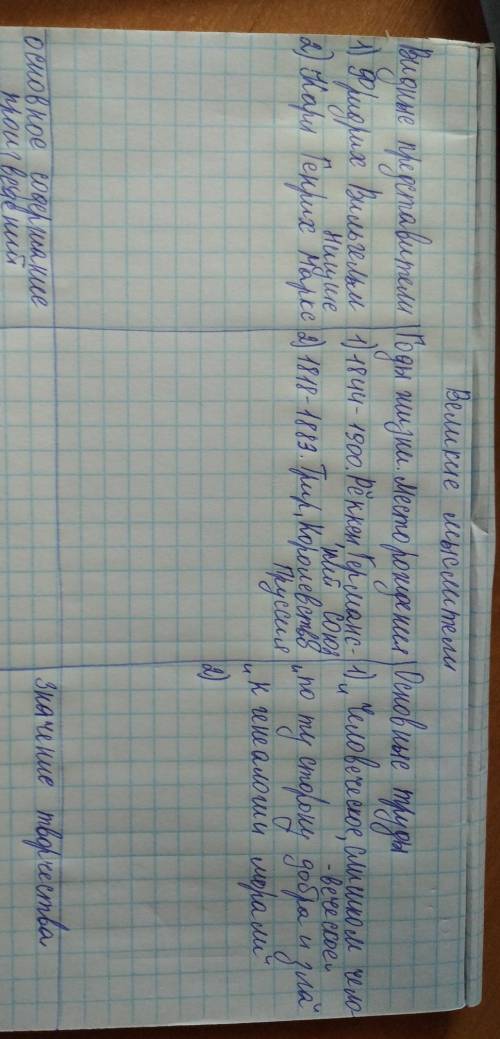 Великие мыслители
Видные представители
1) Фридрих Вильгельм
Ницше
2) Карл Генрих Маркс
Годы жизни. Место рождения
1) 1844-1900. Рёккен, Германс-
кий союз
2) 1818-1883. Трир, Королевство
Пруссия
Основные труды
1) „Человеческое, слишком чело-
-веческое"
„по ту сторону добра и зла"
„к генеалогии морали"
2)
основное содержание
произведений
Значение творчества